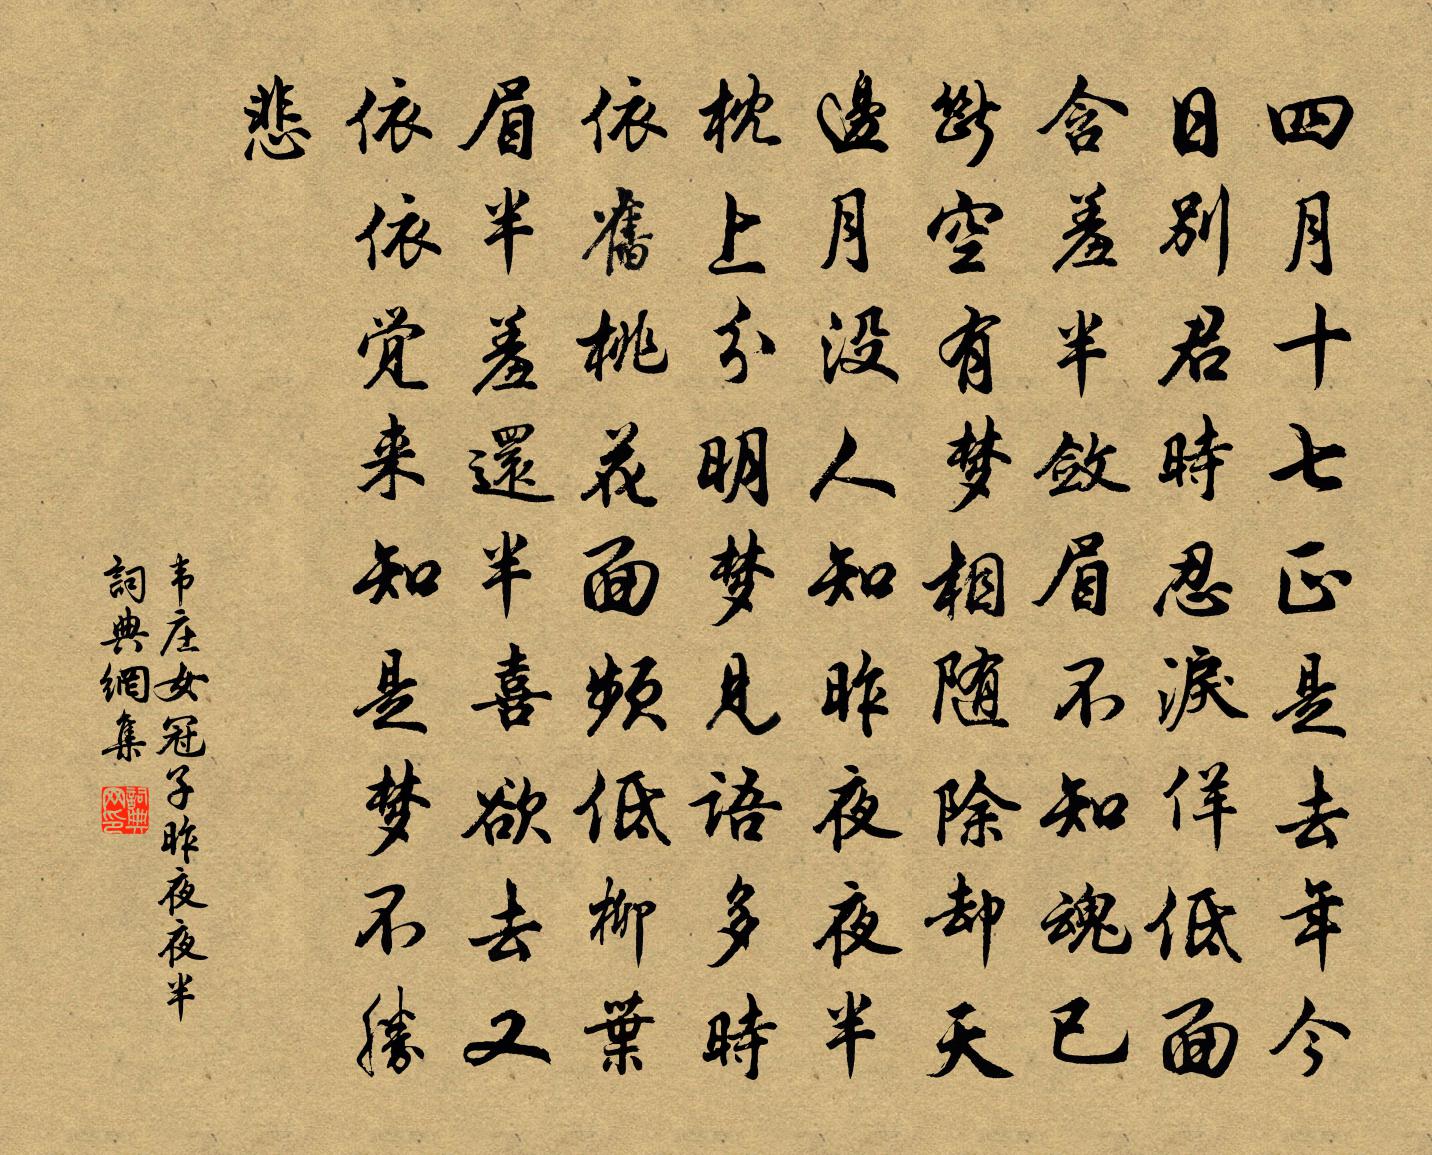 四月十七正是去年今
日別君時忍淚佯低面
含羞半斂眉不知魂已
斷空有梦相随除却天
邊月没人知昨夜夜半
枕上分明梦見语多時
依舊桃花面頻低柳葉
眉半羞還半喜欲去又
依依觉来知是梦不勝
悲
韦庄女冠子昨夜夜半
詞典網集
詞典网印